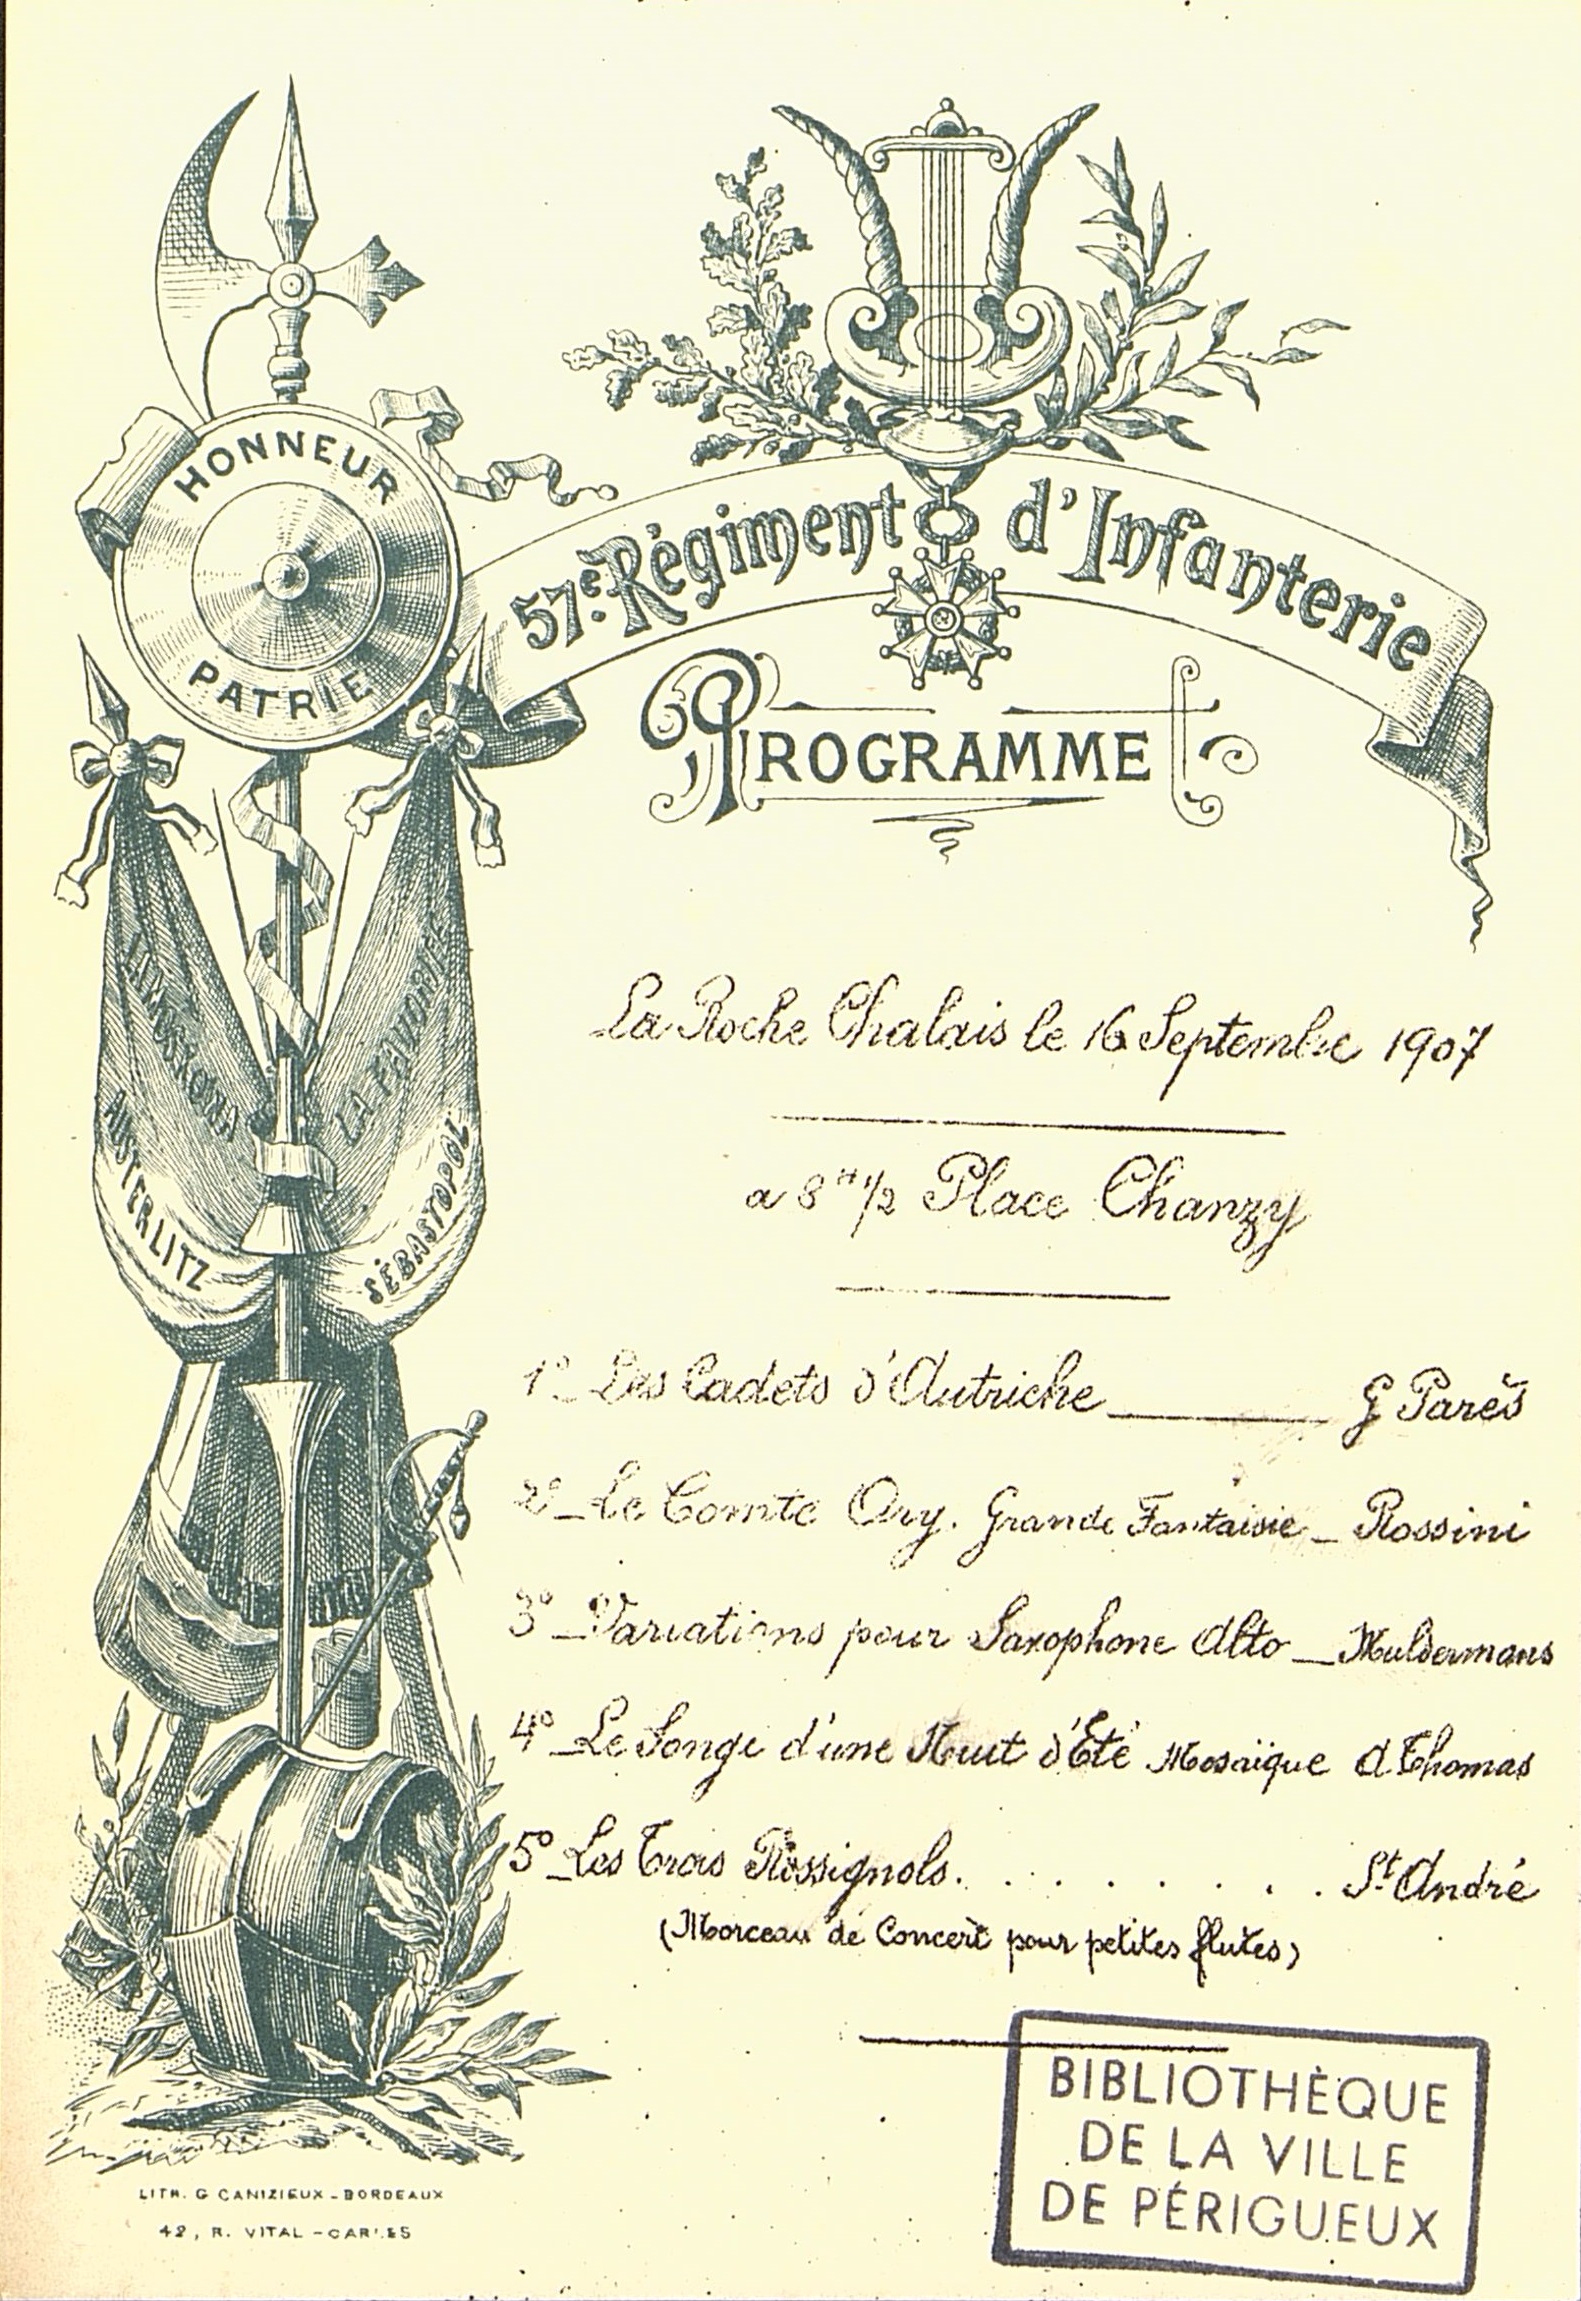 HONNEUR
PATRIE
57e. Régiment d'Infanterie
PROGRAMME
LA MOSKOWA
LA FAVORITE
AUSTERLITZ
SÉBASTOPOL
La Roche Chalais le 16 Septembre 1907
a 8 H 1/2 Place Chanzy
1º_ Les Cadets d'Autriche ______ G Parès
2º_ Le Comte Ory. Grande Fantaisie _ Rossini
3º_ Variations pour Saxophone Alto _ Muldermans
4º_ Le Songe d'une Nuit d'Eté Mosaïque A Thomas
5º_ Les Trois Rossignols. . . . . . . . St. André
(Morceau de Concert pour petites flutes)
BIBLIOTHÈQUE
DE LA VILLE
DE PÉRIGUEUX
LITH. G CANIZIEUX - BORDEAUX
42, R. VITAL - CARLES